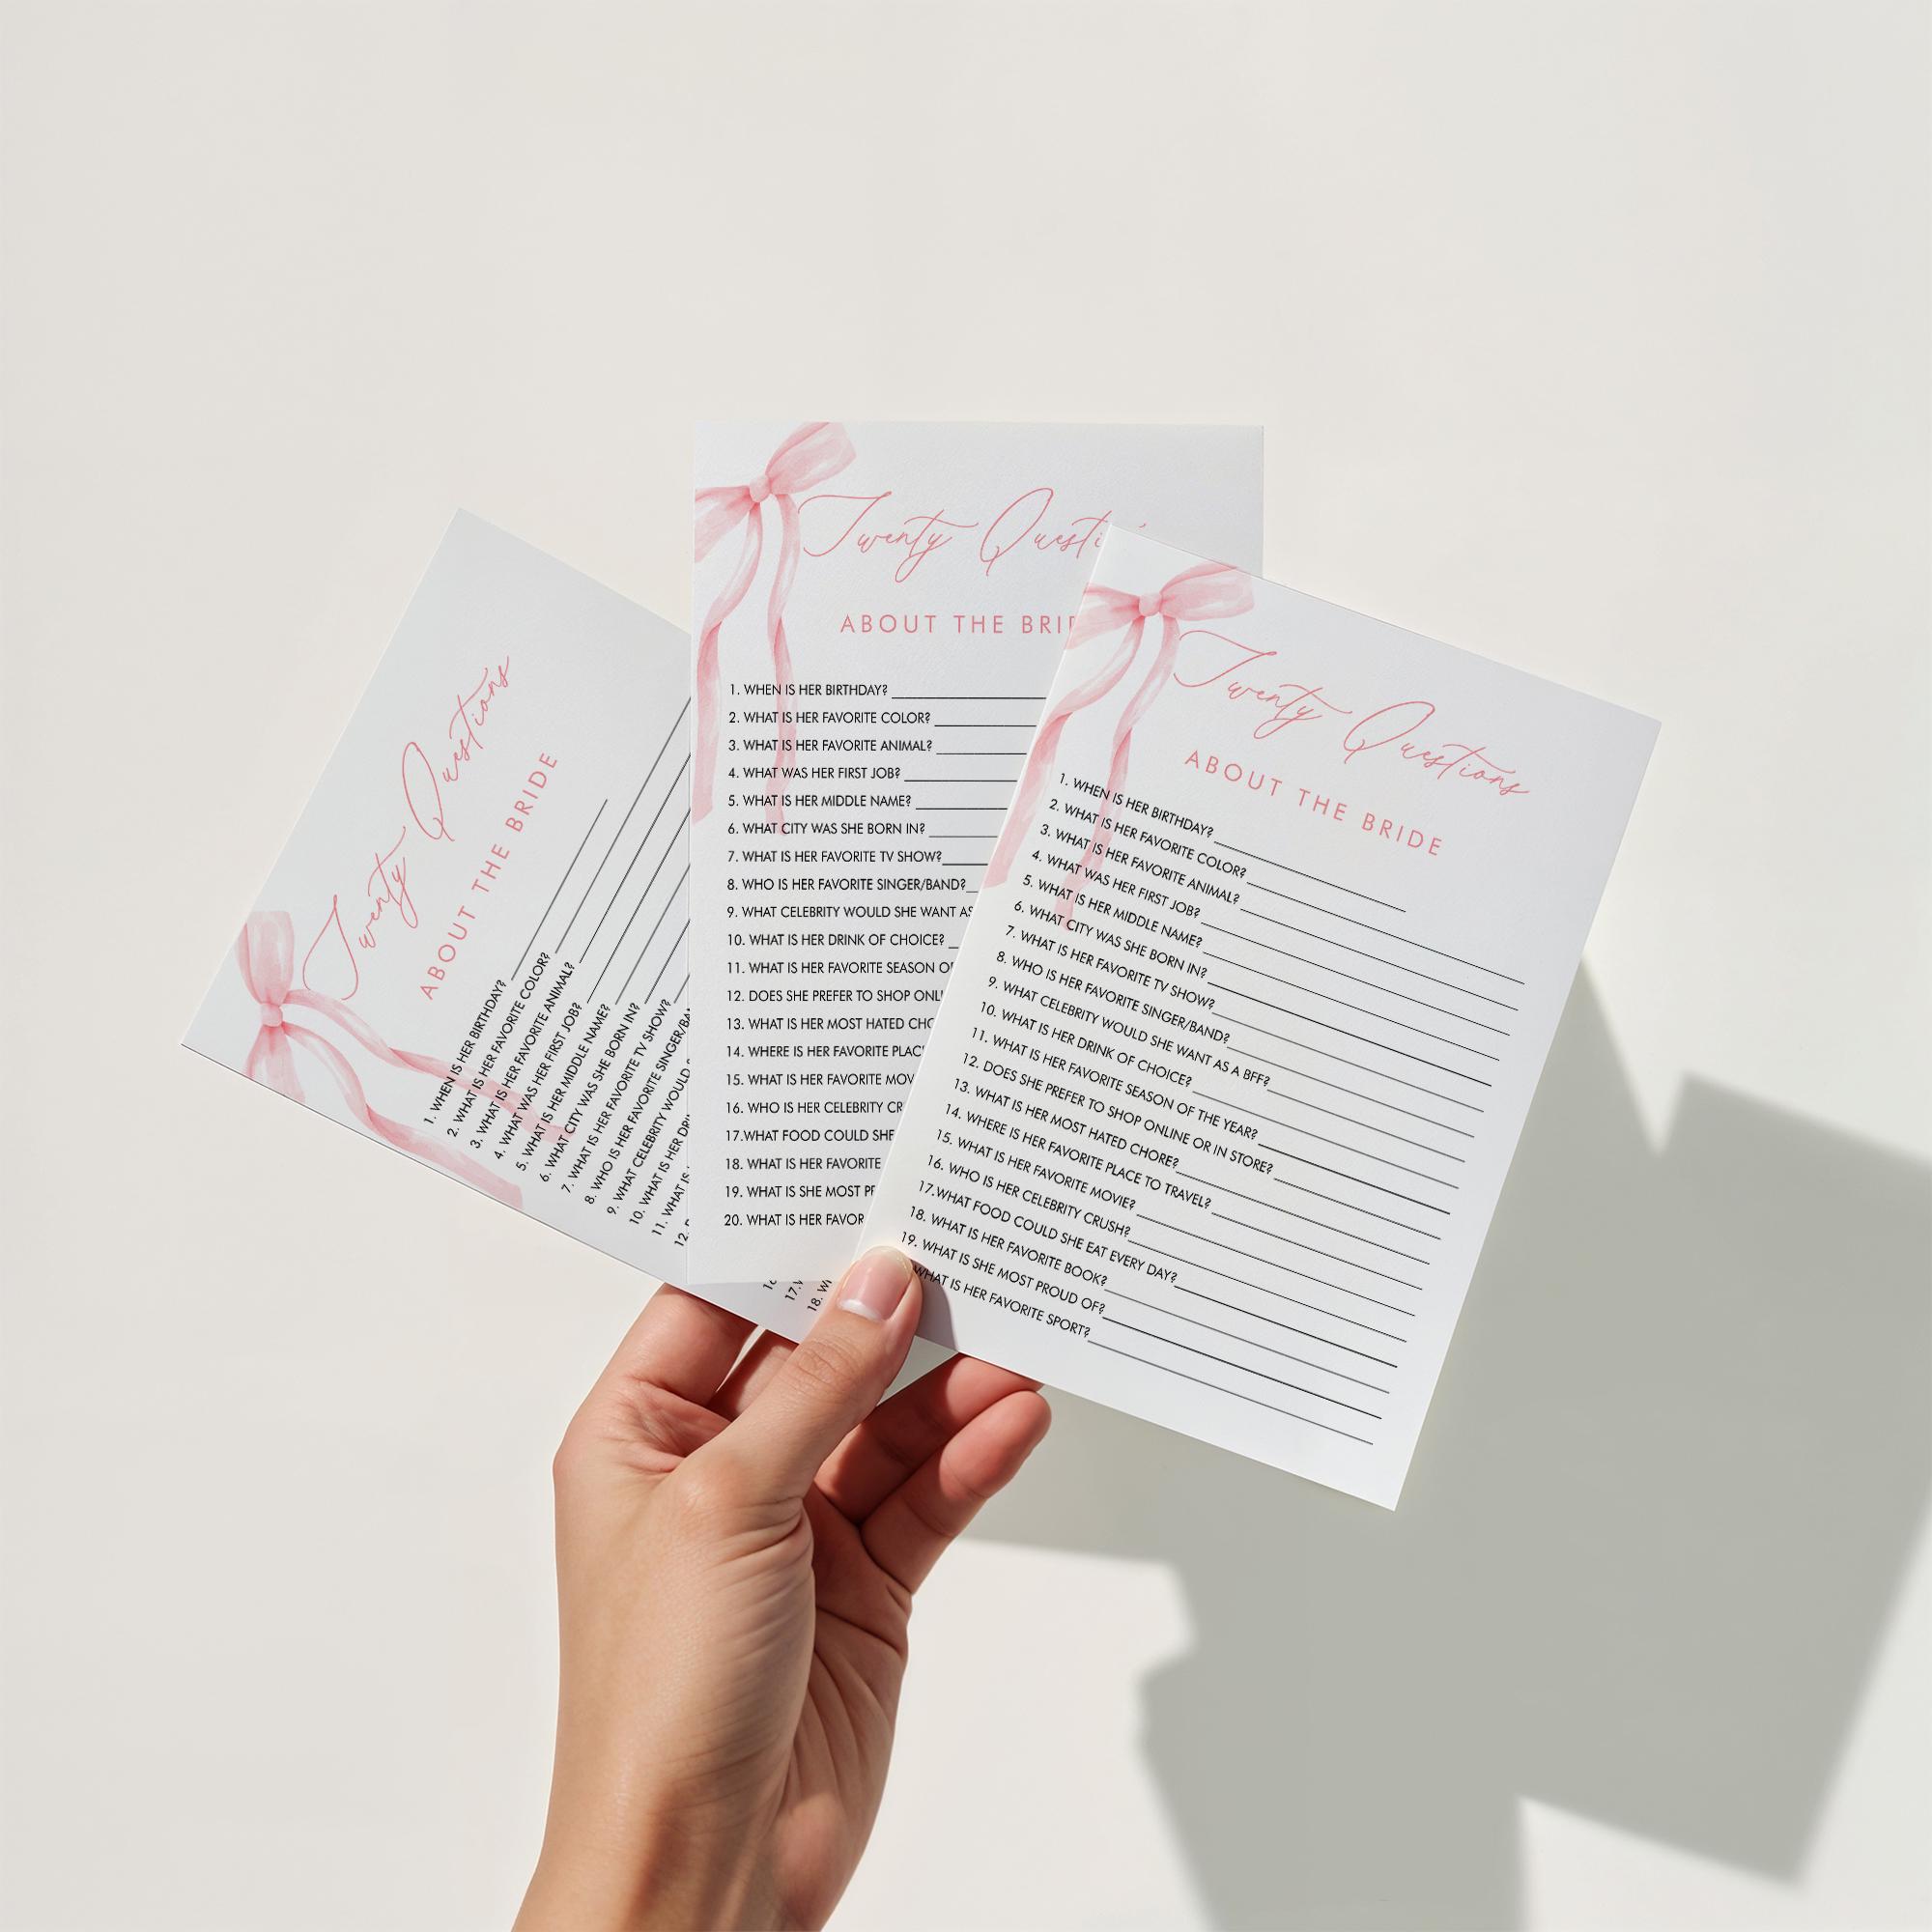 Twenty Questions
ABOUT THE BRIDE
1. WHEN IS HER BIRTHDAY?
2. WHAT IS HER FAVORITE COLOR?
3. WHAT IS HER FAVORITE ANIMAL?
4. WHAT WAS HER FIRST JOB?
5. WHAT IS HER MIDDLE NAME?
6. WHAT CITY WAS SHE BORN IN?
7. WHAT IS HER FAVORITE TV SHOW?
8. WHO IS HER FAVORITE
9. WHAT CELEBRITY WOULD
10. WHAT IS HER
11. WHAT IS
12.
17.
18.
Twenty Questi
ABOUT THE BRI
1. WHEN IS HER BIRTHDAY?
2. WHAT IS HER FAVORITE COLOR?
3. WHAT IS HER FAVORITE ANIMAL?
4. WHAT WAS HER FIRST JOB?
5. WHAT IS HER MIDDLE NAME?
6. WHAT CITY WAS SHE BORN IN?
7. WHAT IS HER FAVORITE TV SHOW?
8. WHO IS HER FAVORITE SINGER/BAND?
9. WHAT CELEBRITY WOULD SHE WANT AS
10. WHAT IS HER DRINK OF CHOICE?
11. WHAT IS HER FAVORITE SEASON O
12. DOES SHE PREFER TO SHOP ONLI
13. WHAT IS HER MOST HATED CHO
14. WHERE IS HER FAVORITE PLAC
15. WHAT IS HER FAVORITE MOV
16. WHO IS HER CELEBRITY CR
17.WHAT FOOD COULD SHE
18. WHAT IS HER FAVORITE
19. WHAT IS SHE MOST P
20. WHAT IS HER FAVOR
Twenty Questions
ABOUT THE BRIDE
1. WHEN IS HER BIRTHDAY?
2. WHAT IS HER FAVORITE COLOR?
3. WHAT IS HER FAVORITE ANIMAL?
4. WHAT WAS HER FIRST JOB?
5. WHAT IS HER MIDDLE NAME?
6. WHAT CITY WAS SHE BORN IN?
7. WHAT IS HER FAVORITE TV SHOW?
8. WHO IS HER FAVORITE SINGER/BAND?
9. WHAT CELEBRITY WOULD SHE WANT AS A BFF?
10. WHAT IS HER DRINK OF CHOICE?
11. WHAT IS HER FAVORITE SEASON OF THE YEAR?
12. DOES SHE PREFER TO SHOP ONLINE OR IN STORE?
13. WHAT IS HER MOST HATED CHORE?
14. WHERE IS HER FAVORITE PLACE TO TRAVEL?
15. WHAT IS HER FAVORITE MOVIE?
16. WHO IS HER CELEBRITY CRUSH?
17.WHAT FOOD COULD SHE EAT EVERY DAY?
18. WHAT IS HER FAVORITE BOOK?
19. WHAT IS SHE MOST PROUD OF?
WHAT IS HER FAVORITE SPORT?